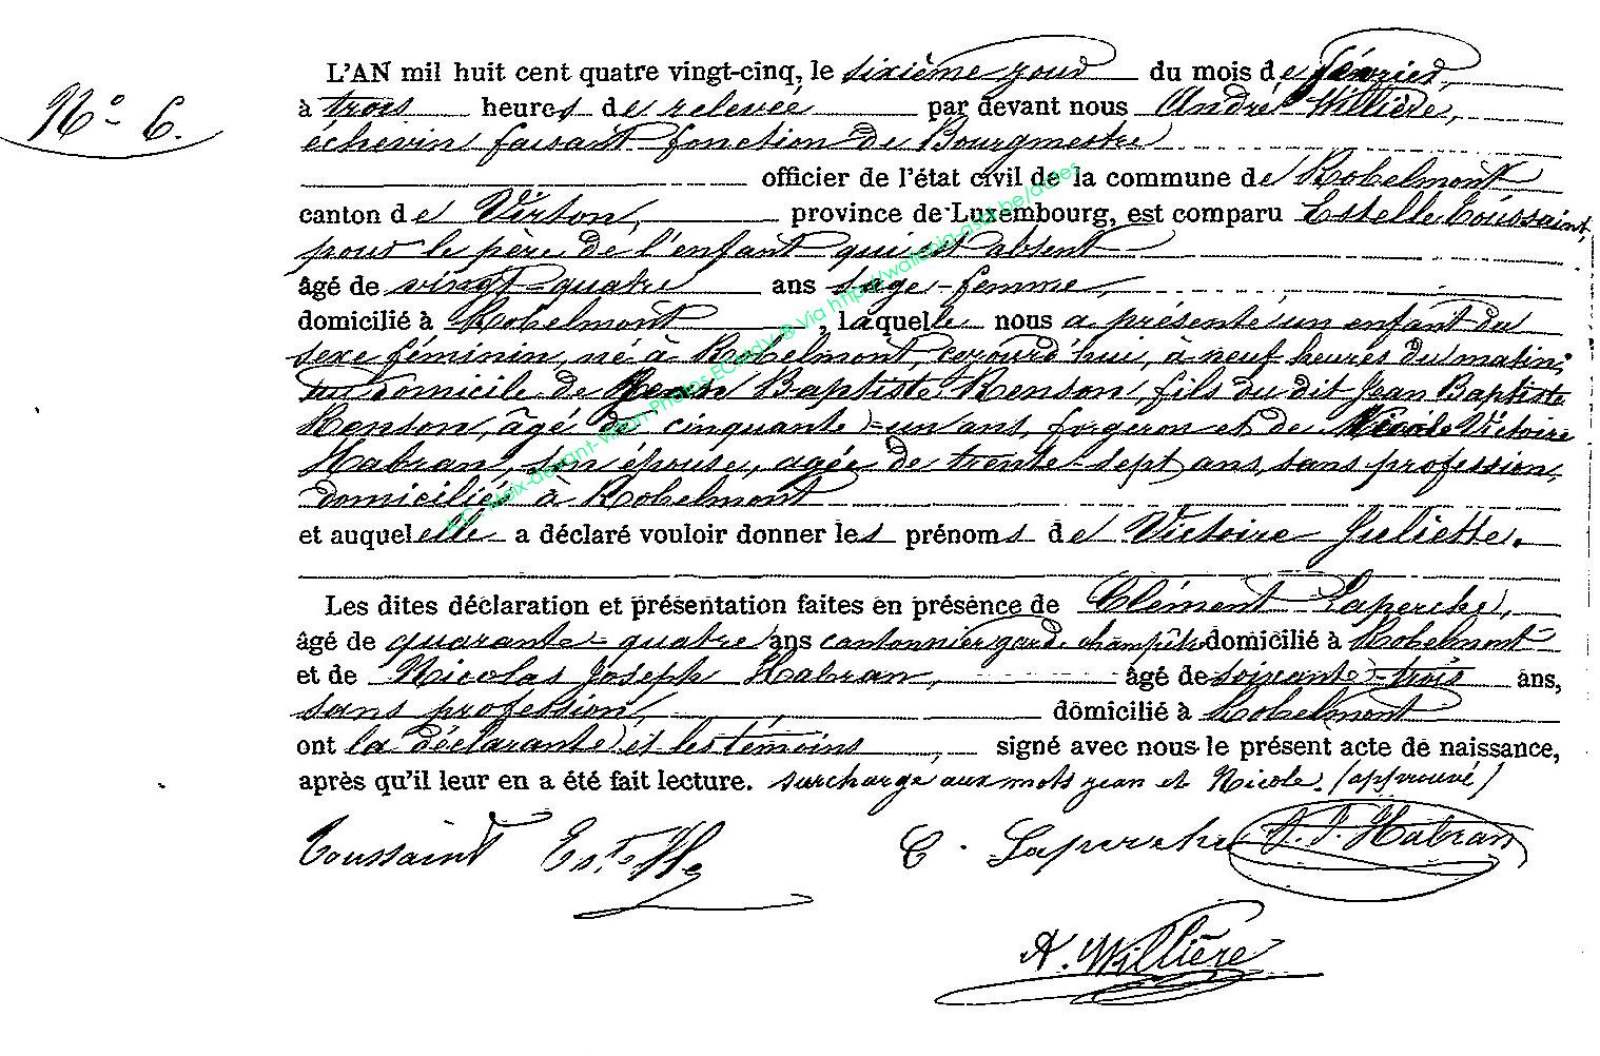 N° 6.
L'AN mil huit cent quatre vingt-cinq, le sixième jour du mois de février
à trois heures de relevée par devant nous André Willière,
échevin faisant fonction de Bourgmestre
officier de l'état civil de la commune de Robelmont
canton de Virton, province de Luxembourg, est comparu Estelle Toussaint,
pour le père de l'enfant qui est absent
âgé de vingt-quatre ans sage-femme,
domicilié à Robelmont, laquelle nous a présenté un enfant du
sexe féminin, né à Robelmont, cejourd'hui, à neuf heures du matin,
au domicile de Jean Baptiste Renson, fils du dit Jean Baptiste
Renson, âgé de cinquante-un ans, forgeron et de Nicole Victoire
Habran, son épouse, agée de trente-sept ans, sans profession,
domiciliés à Robelmont
et auquel elle a déclaré vouloir donner les prénoms de Victoire Juliette.
Les dites déclaration et présentation faites en présence de Clément Laperche,
âgé de quarante-quatre ans cantonnier garde champêtre domicilié à Robelmont
et de Nicolas Joseph Habran, âgé de soixante-trois ans,
sans profession, domicilié à Robelmont
ont la déclarante et les témoins, signé avec nous le présent acte de naissance,
après qu'il leur en a été fait lecture. surcharge aux mots jean et Nicole. (approuvé)
Toussaint Estelle C. Laperche N. J. Habran
A. Willière